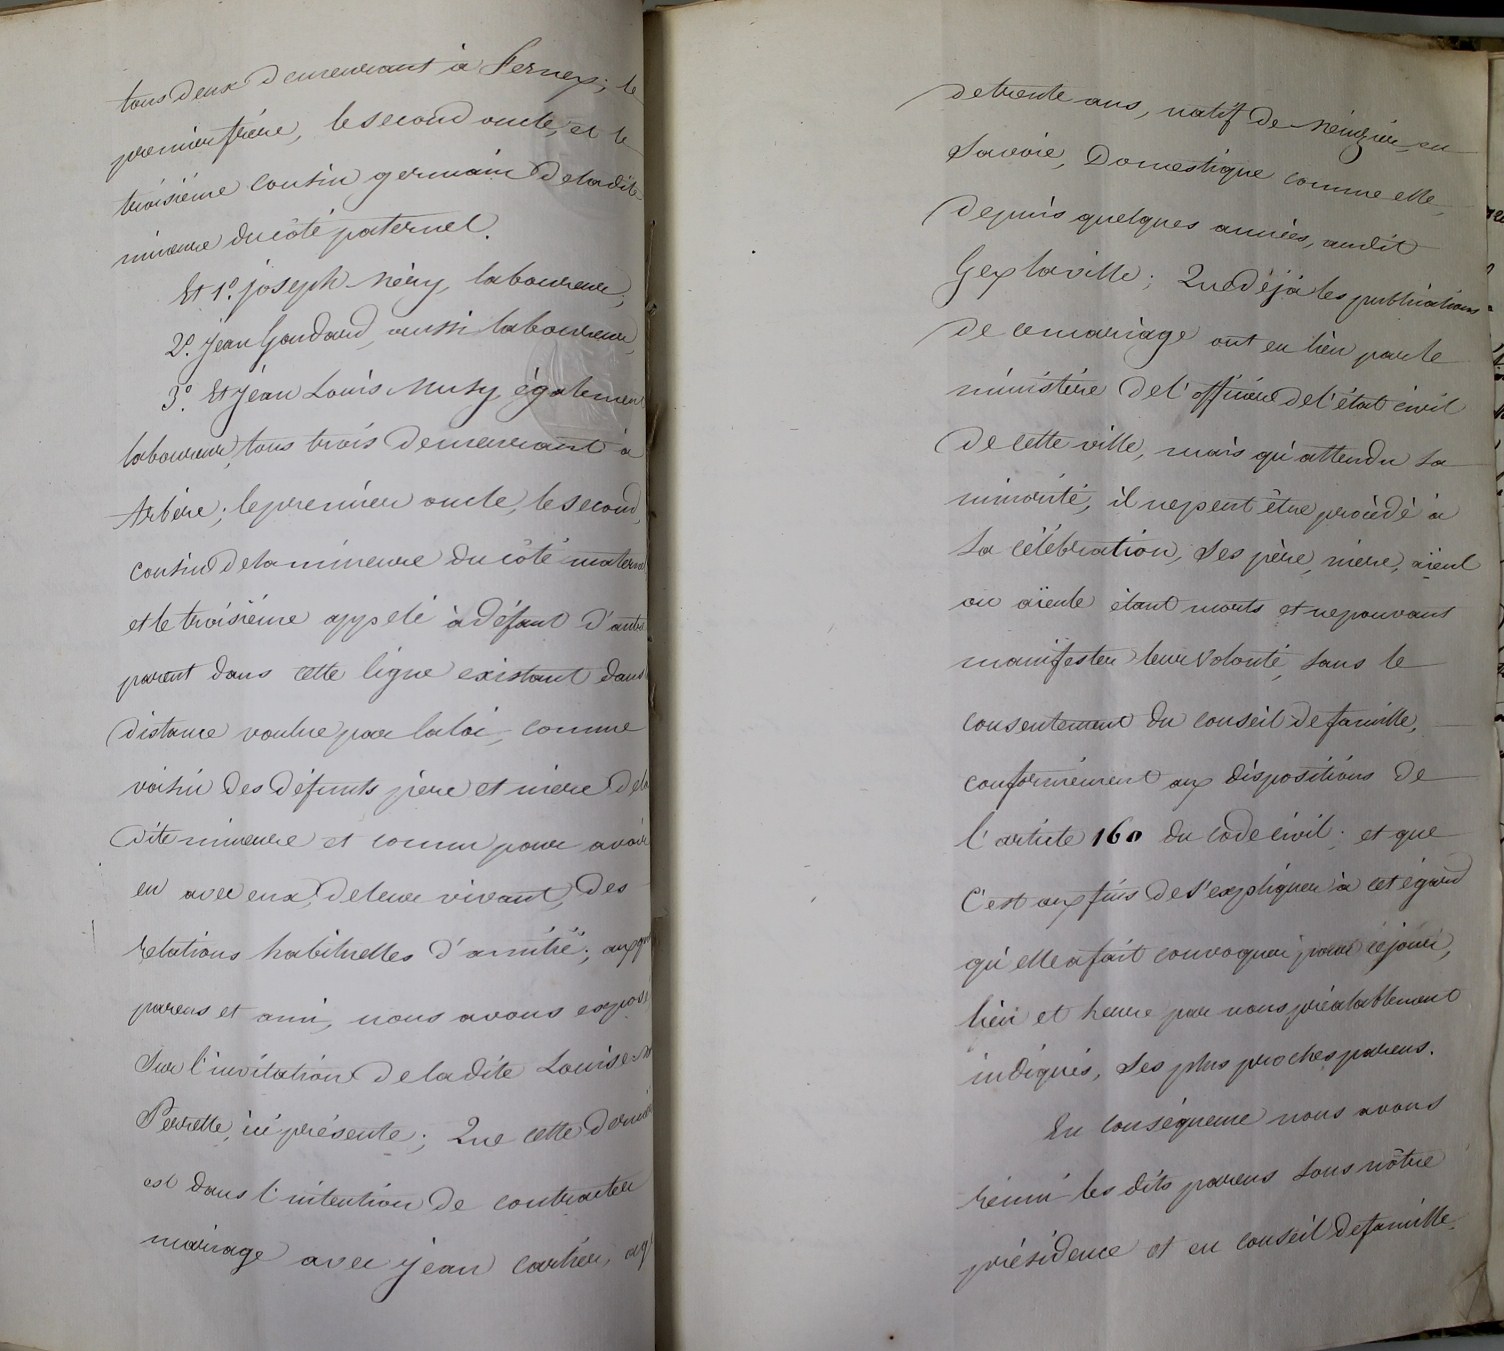 tous deux demeurant à Fernex; le
premier frère, le second oncle, et le
troisième cousin germain de la dite
mineure du côté paternel.
Et 1.º joseph Néry, laboureur;
2.º jean Goudard, aussi laboureur,
3.º Et jéan Louis Musy, également
laboureur, tous trois demeurant à
Arbère; le premier oncle, le second,
cousin de la mineure du côté matern
et le troisième appelé à défaut d'autre
parent dans cette ligne existant dans
distance voulue par la loi, comme
voisin des défunts père et mère de la
dite mineure et connu pour avoir
eu avec eux, de leur vivant, des
relations habituelles d'amitié; aux
parens et ami, nous avons expos
sur l'invitation de la dite Louise
Perrette, ici présente; Que cette derni
est dans l'intention de contracter
mariage avec jean Carrier, ag
de trente ans, natif de en
Savoie, Domestique comme elle,
depuis quelques années, audit
Gex la ville; Que déjà les publications
de ce mariage ont eu lieu par le
ministère de l'officier de l'état civil
de cette ville, mais qu'attendu sa
minorité, il ne peut être procédé à
sa célébration, ses père, mère, aïeul
ou aïeule étant morts et ne pouvant
manifester leur volonté, sans le
consentement du conseil de famille,
conformément aux dispositions de
l'article 160 du code civil; et que
c'est aux fins de s'expliquer à cet égard
qu'elle a fait convoquer pour ce jour,
lieu et heure par nous préalablement
indiqués, ses plus proches parens.
En conséquence nous avons
réuni les dits parens sous nôtre
présidence et en conseil de famille.